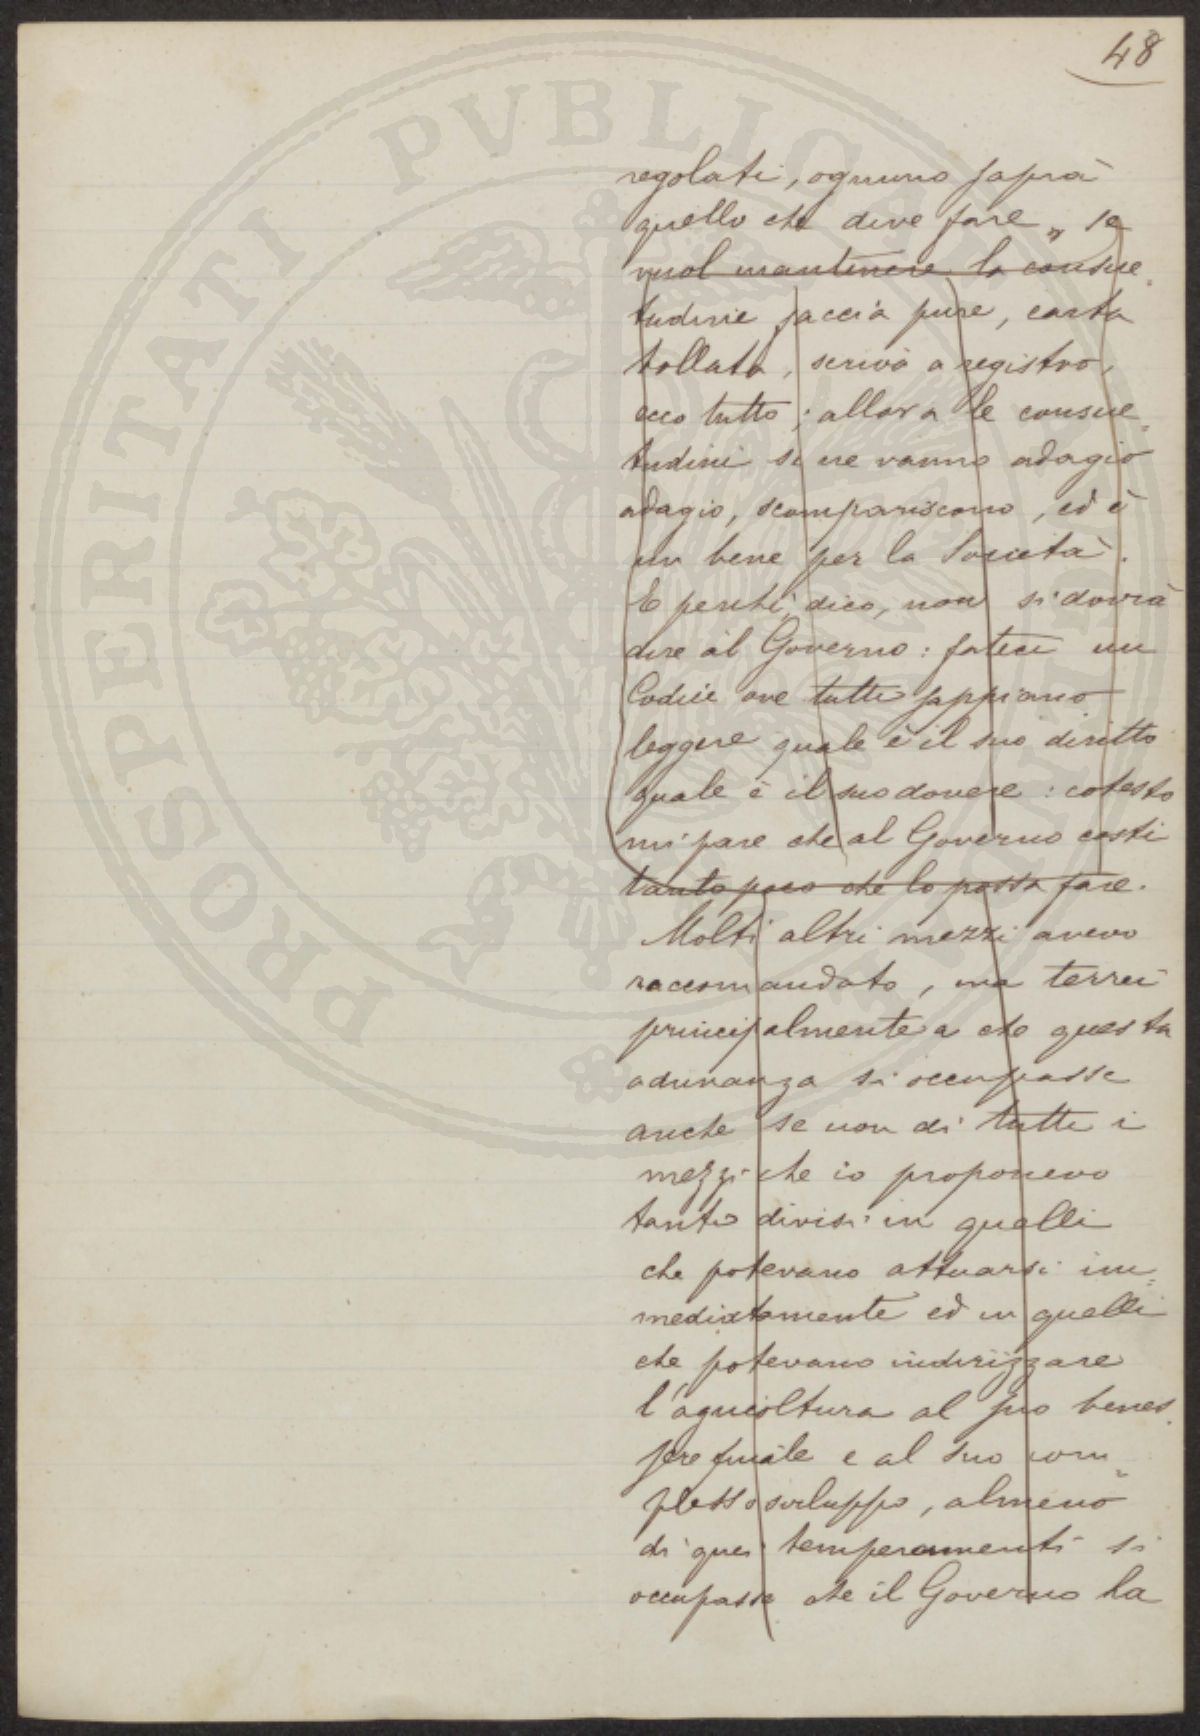 48
regolati, ognuno saprà
quello che deve fare „ se
vuol mantenere la consue-
tudine faccia pure, carta
bollata, scriva a registro,
ecco tutto; allora le consue=
tudini se ne vanno adagio
adagio, scompariscono, ed è
un bene per la Società.
E perchè, dico, non si dovrà
dire al Governo: fateci un
Codice ove tutti sappiano
leggere quale è il suo diritto
quale è il suo dovere: cotesto
mi pare che al Governo costi
tanto poco che lo possa fare.
Molti altri mezzi avevo
raccomandato, ma terrei
principalmente a che questa
adunanza si occupasse
anche se non di tutti i
mezzi che io proponevo
tanto divisi in quelli
che potevano attuarsi im=
mediatamente ed in quelli
che potevano indirizzare
l'agricoltura al suo benes-
sere finale e al suo com=
plesso sviluppo, almeno
di quei temperamenti si
occupasse che il Governo ha
PROSPERITATI PVBLICAE